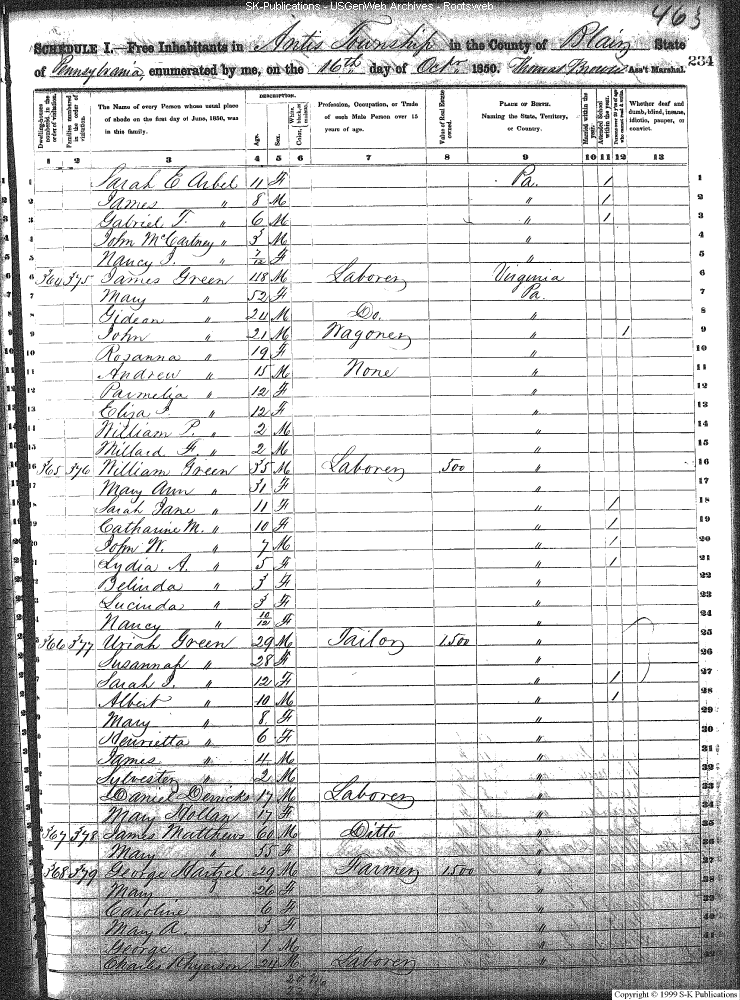 SK-Publications - USGenWeb Archives - Rootsweb
463
SCHEDULE I.—Free Inhabitants in Antis Township in the County of Blair State
of Pennsylvania, enumerated by me, on the 16th day of Octr. 1850. Thomas Brown Ass't Marshal. 234
Dwelling-houses numbered in the order of visitation.
Families numbered in the order of visitation.
The Name of every Person whose usual place of abode on the first day of June, 1850, was in this family.
DESCRIPTION.
Age.
Sex.
Color,
Profession, Occupation, or Trade of each Male Person over 15 years of age.
Value of Real Estate owned.
PLACE OF BIRTH. Naming the State, Territory, or Country.
Married within the year.
Attended School within the year.
Persons over 20 y'rs of age who cannot read & write.
Whether deaf and dumb, blind, insane, idiotic, pauper, or convict.
1 2 3 4 5 6 7 8 9 10 11 12 13
1 Sarah E Arbel 11 F Pa. / 1
2 James " 8 M " / 2
3 Gabriel T. " 6 M " / 3
4 John McCartney " 3 M " 4
5 Nancy J. " 7/12 F " 5
6 364 375 James Green 48 M Laborer Virginia 6
7 Mary " 52 F Pa. 7
8 Gideon " 24 M Do. " 8
9 John " 21 M Wagoner " 1 9
10 Rosanna " 19 F " 10
11 Andrew " 15 M None " 11
12 Parmelia " 12 F " 12
13 Eliza J. " 12 F " 13
14 William P. " 2 M " 14
15 Millard F. " 2 M " 15
16 365 376 William Green 35 M Laborer 500 " 16
17 Mary Ann " 31 F " 17
18 Sarah Jane " 11 F " / 18
19 Catharine M. " 10 F " / 19
20 John W. " 7 M " / 20
21 Lydia A. " 5 F " / 21
22 Belinda " 3 F " 22
23 Lucinda " 3 F " 23
24 Nancy " 10/12 F " 24
25 366 377 Uriah Green 29 M Tailor 1500 " 25
26 Susannah " 28 F " 26
27 Sarah J. " 12 F " / 27
28 Albert " 10 M " / 28
29 Mary " 8 F " 29
30 Henrietta " 6 F " 30
31 James " 4 M " 31
32 Sylvester " 2 M " 32
33 Daniel Derricks 17 M Laborer " 33
34 Mary Hollan 17 F " 34
35 367 378 James Matthews 60 M Ditto " 35
36 Mary " 55 F " 36
37 368 379 George Hartzel 29 M Farmer 1500 " 37
38 Mary 26 F " 38
39 Caroline 6 F "
40 Mary A. 3 F " 40
George 1 M "
Charles 24 M Laborer "
Copyright © 1999 S-K Publications